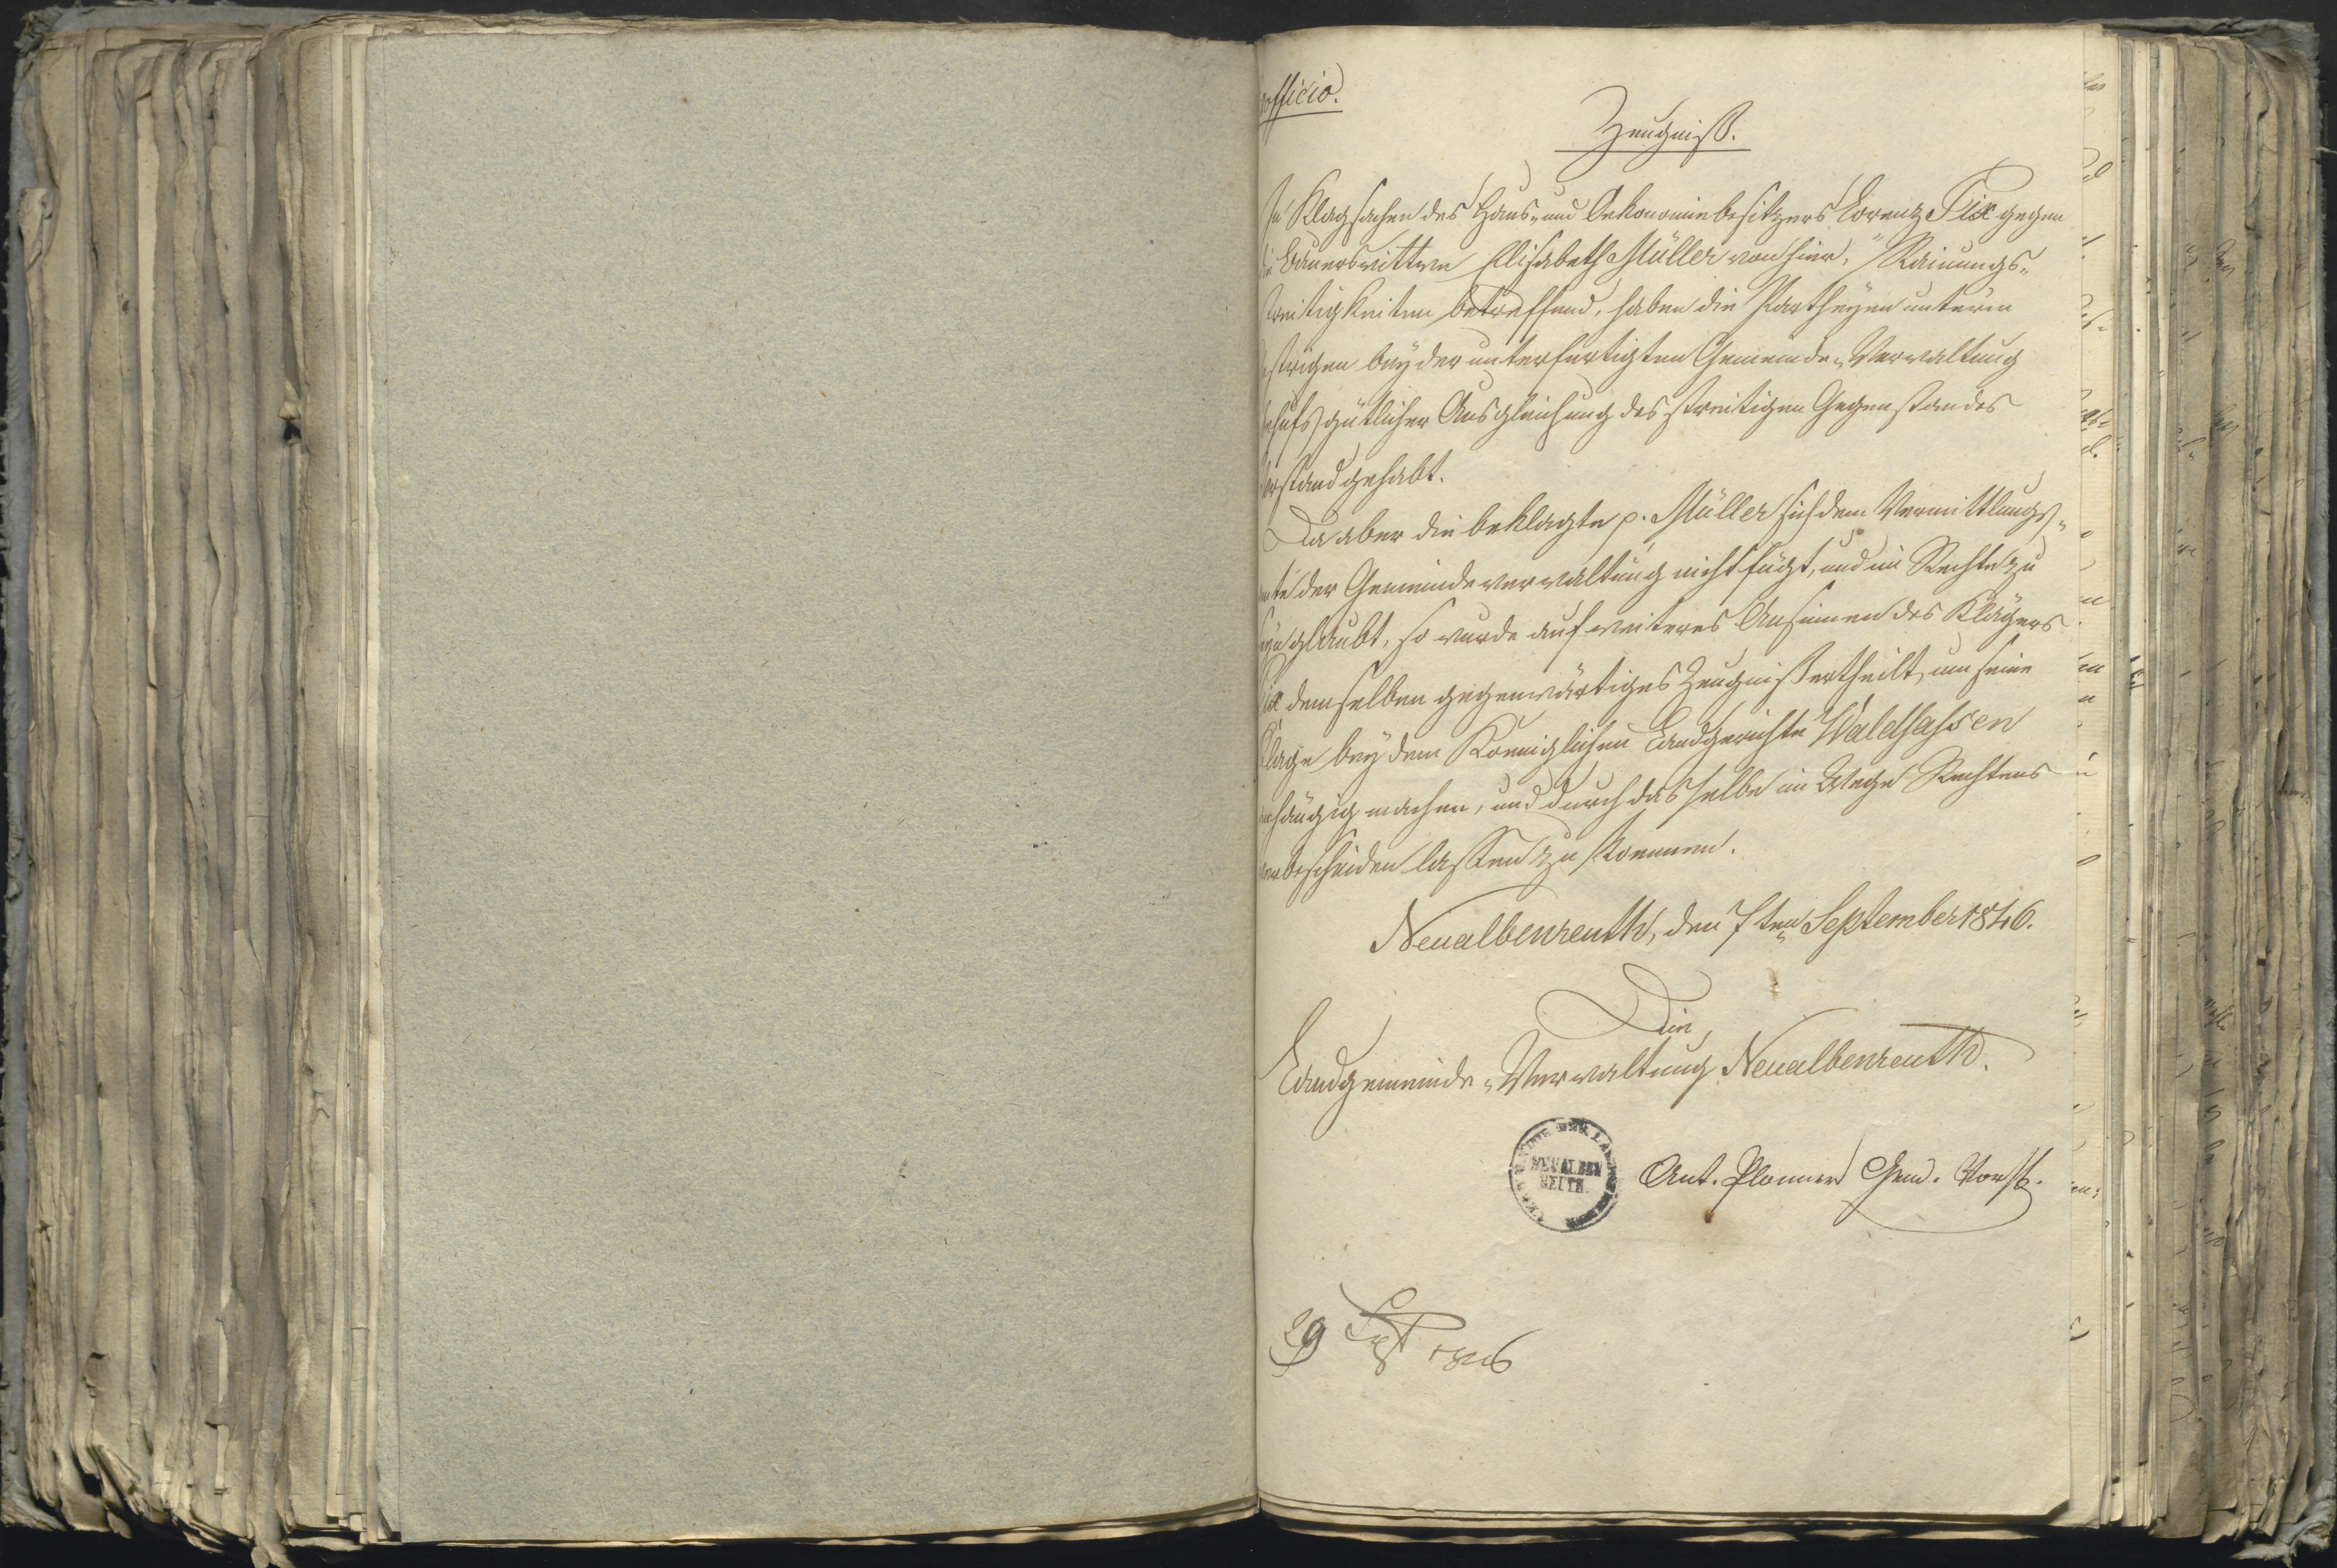 officio.
Zeugniß.
In Klagsachen des Haus- und Oekonomiebesitzers Lorenz Fix gegen
die Bauerswittwe Elisabeth Müller von hier, Rainungs-
streitigkeiten betreffend, haben die Partheyen unterm
gestrigen bey der unterfertigten Gemeinde-Verwaltung
behufs gütlicher Ausgleichung des streitigen Gegenstandes
Vorstand gehabt.
Da aber die beklagte p. Müller sich dem Vermittlungs-
amte der Gemeindeverwaltung nicht fügt, und im Rechte zu
seyn glaubt, so wurde auf weiteres Ansinnen des Klägers
Fix demselben gegenwärtiges Zeugniß ertheilt, um seine
Klage bey dem Koeniglichen Landgerichte Waldsassen
anhängig machen, und durch dasselbe im Wege Rechtens
verbescheiden lassen zu koennen.
Neualbenreuth, den 7ten September 1846.
Die
Landgemeinde-Verwaltung Neualbenreuth.
NEUALBEN
REUTH.
Ant. Plonner Gem. Vorst.
29 Sept 1846